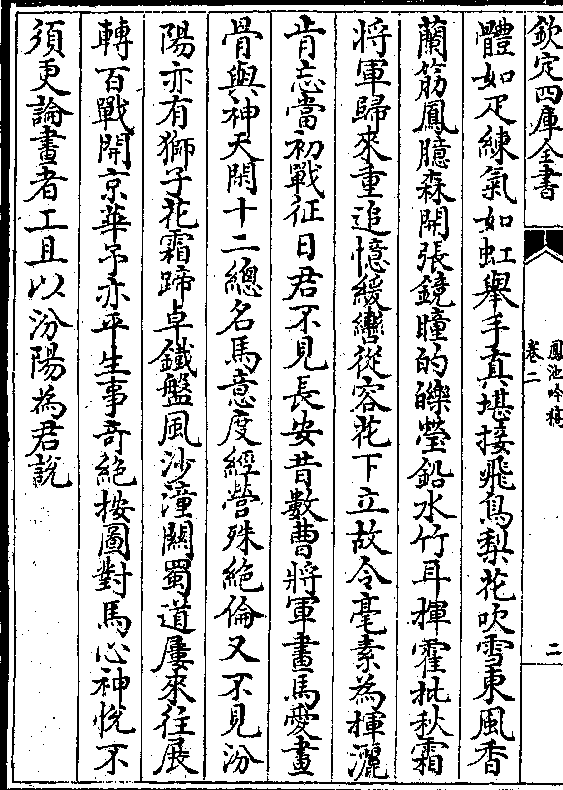 欽定四庫全書
鳳池吟稿
卷二
二
體如疋練氣如虹舉手真堪接飛鳥梨花吹雪東風香
蘭筋鳳臆森開張鏡瞳的皪瑩鉛水竹耳揮霍批秋霜
將軍歸來重追憶緩轡從容花下立故令毫素為揮灑
肯忘當初戰征日君不見長安昔數曹將軍畫馬愛畫
骨與神天閑十二總名馬意度經營殊絶倫又不見汾
陽亦有獅子花霜蹄卓鐵盤風沙潼關蜀道屢來往展
轉百戰開京華予亦平生事奇絶按圖對馬心神悅不
須更論畫者工且以汾陽為君說